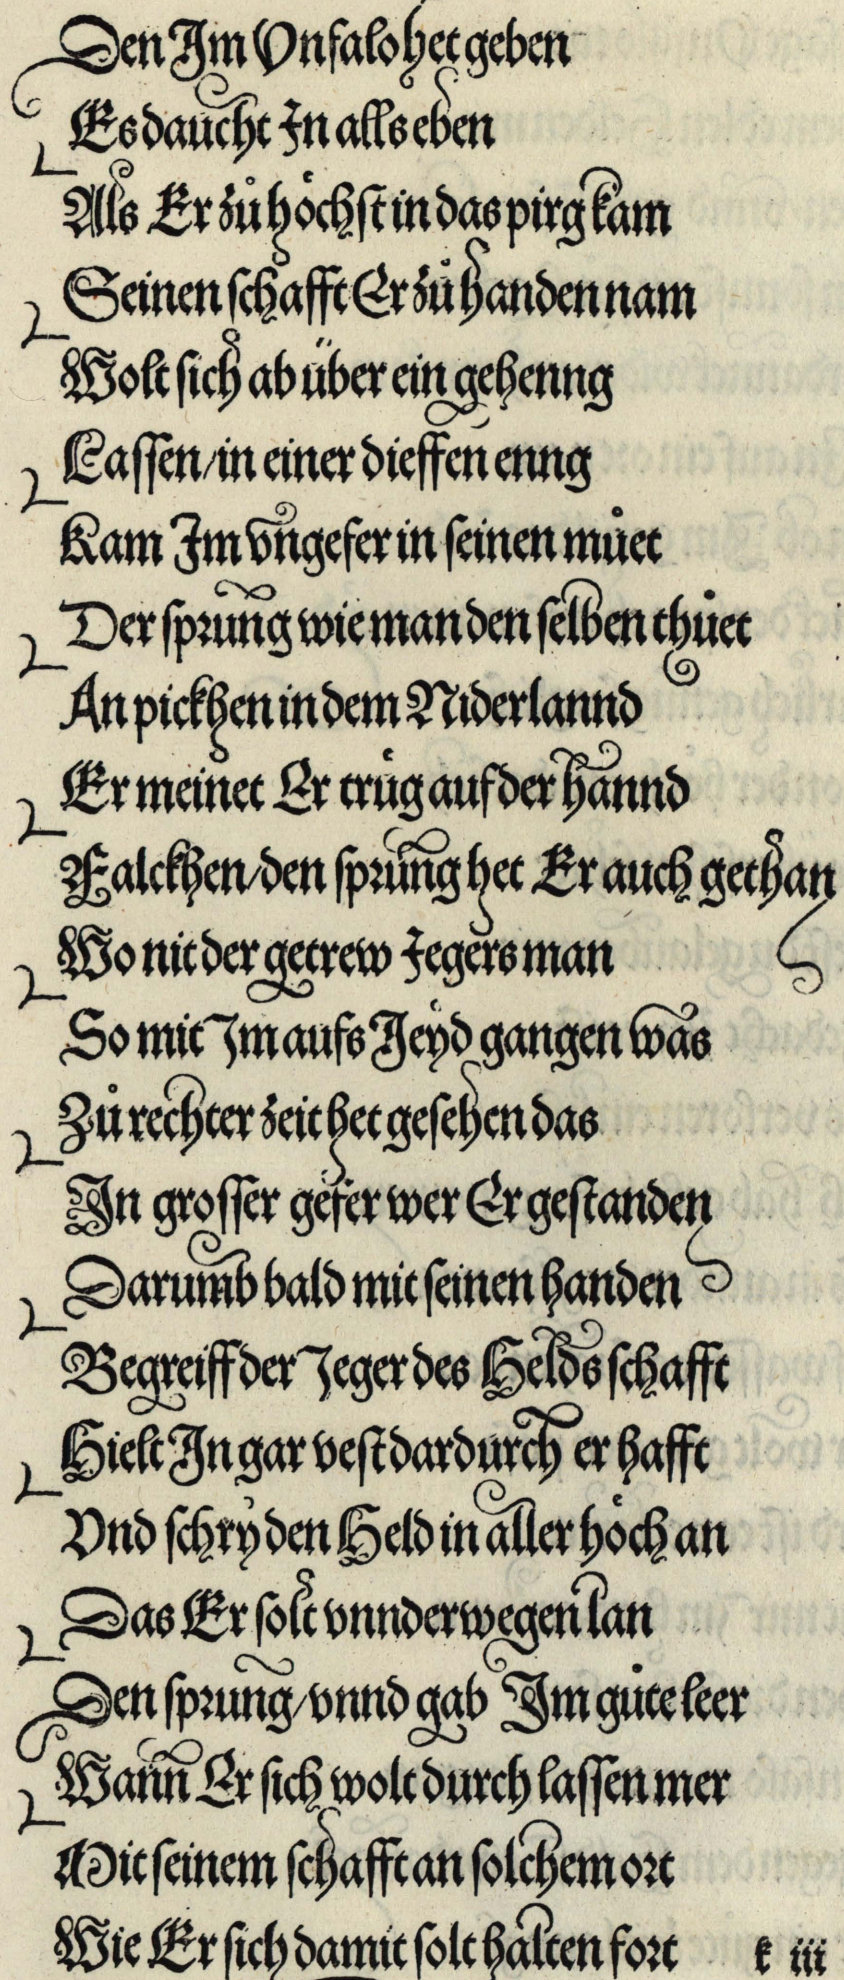 Den Im Vnfalo het geben
Es daucht In alls eben
Als Er zů höchst in das pirg kam
Seinen schafft Er zů handen nam
Wolt sich ab über ein gehenng
Lassen/in einer dieffen enng
Kam Im vngefer in seinen můet
Der sprung wie man den selben thůet
An pickhen in dem Niderlannd
Er meinet Er trůg auf der hannd
Falckhen/den sprung het Er auch gethan
Wo nit der getrew Jegers man
So mit Im aufs Jeyd gangen was
Zů rechter zeit het gesehen das
In grosser gefer wer Er gestanden
Darumb bald mit seinen handen
Begreiff der Jeger des Helds schafft
Hielt In gar vest dardurch er hafft
Vnd schry den Held in aller höch an
Das Er solt vnnderwegen lan
Den sprung/vnnd gab Im gůte leer
Wann Er sich wolt durch lassen mer
Mit seinem schafft an solchem ort
Wie Er sich damit solt halten fort k iii